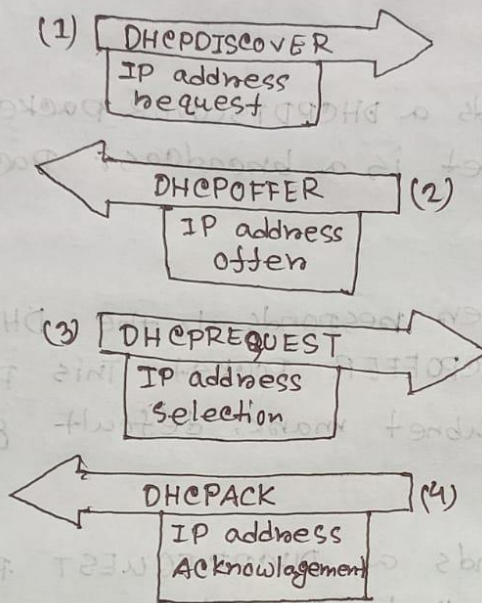 (1) DHCPDISCOVER
IP address
request
DHCPOFFER (2)
IP address
offer
(3) DHCPREQUEST
IP address
Selection
DHCPACK (4)
IP address
Acknowlagement